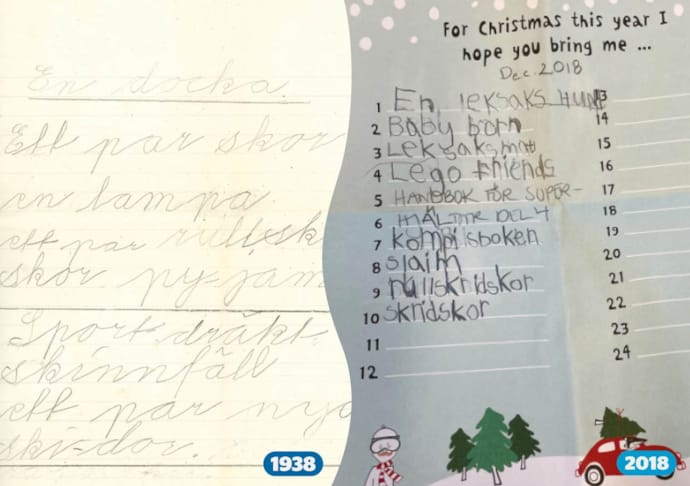 En docka.
Ett par skor
en lampa.
ett par rullsk
skor py-jam
Sport dräkt.
skinnfäll
ett par nya
ski-dor.
1938
For Christmas this year I
hope you bring me ...
Dec. 2018
1 En leksaks HUND
2 Baby born
3 Leksaksmat
4 Lego friends
5 HANDBOK FÖR SUPER-
6 HJÄLTAR DEL 4
7 kompisboken
8 slaim
9 rullskridskor
10 skridskor
11
12
13
14
15
16
17
18
19
20
21
22
23
24
2018